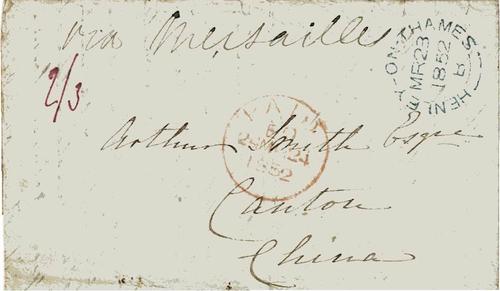 via Mersailles
HENLEY-ON-THAMES
MR 23
1852
B
2/3
PAID
24 MR 24
1852
Arthur Smith Esqre
Canton
China